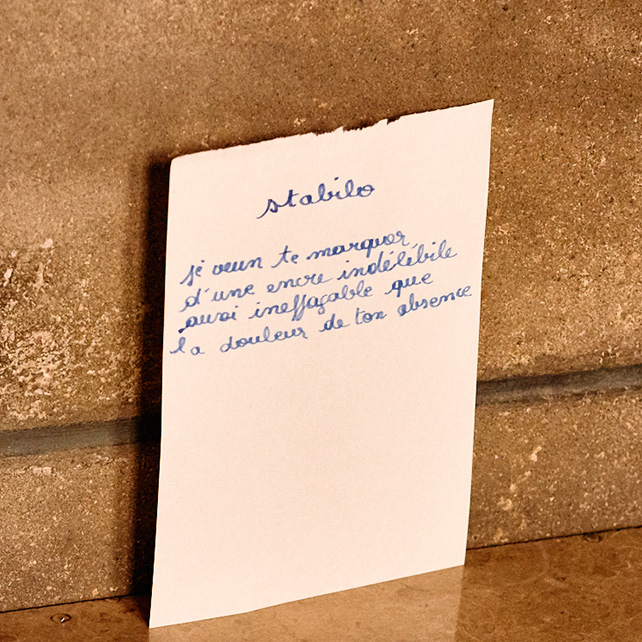 stabilo
je veux te marquer
d'une encre indélébile
aussi ineffaçable que
la douleur de ton absence